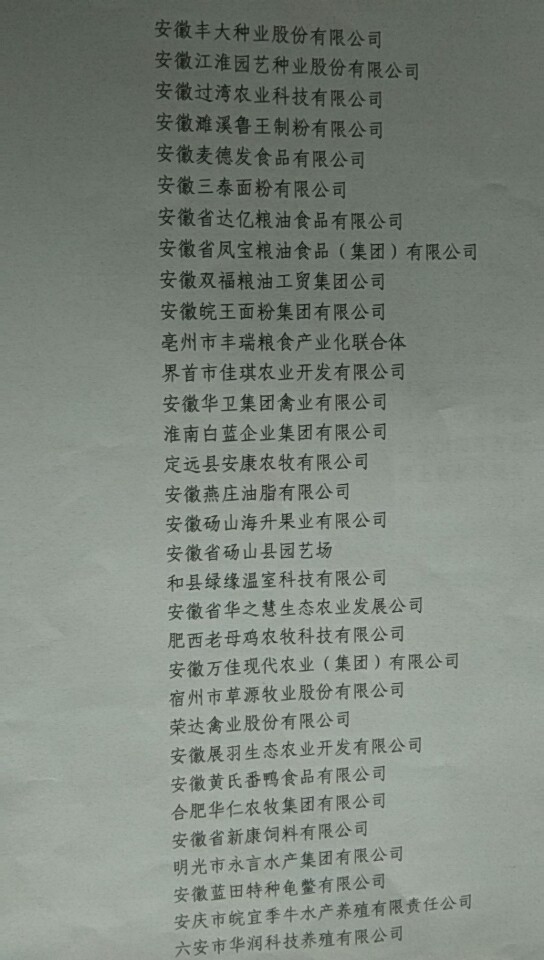 安徽丰大种业股份有限公司
安徽江淮园艺种业股份有限公司
安徽过湾农业科技有限公司
安徽濉溪鲁王制粉有限公司
安徽麦德发食品有限公司
安徽三泰面粉有限公司
安徽省达亿粮油食品有限公司
安徽省凤宝粮油食品（集团）有限公司
安徽双福粮油工贸集团公司
安徽皖王面粉集团有限公司
亳州市丰瑞粮食产业化联合体
界首市佳琪农业开发有限公司
安徽华卫集团禽业有限公司
淮南白蓝企业集团有限公司
定远县安康农牧有限公司
安徽燕庄油脂有限公司
安徽砀山海升果业有限公司
安徽省砀山县园艺场
和县绿缘温室科技有限公司
安徽省华之慧生态农业发展公司
肥西老母鸡农牧科技有限公司
安徽万佳现代农业（集团）有限公司
宿州市草源牧业股份有限公司
荣达禽业股份有限公司
安徽展羽生态农业开发有限公司
安徽黄氏番鸭食品有限公司
合肥华仁农牧集团有限公司
安徽省新康饲料有限公司
明光市永言水产集团有限公司
安徽蓝田特种龟鳖有限公司
安庆市皖宜季牛水产养殖有限责任公司
六安市华润科技养殖有限公司